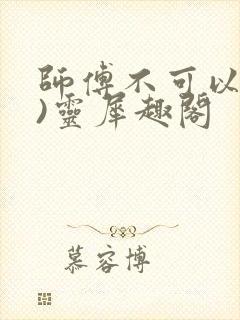 師傅不可以
)靈犀趣閣
慕容博